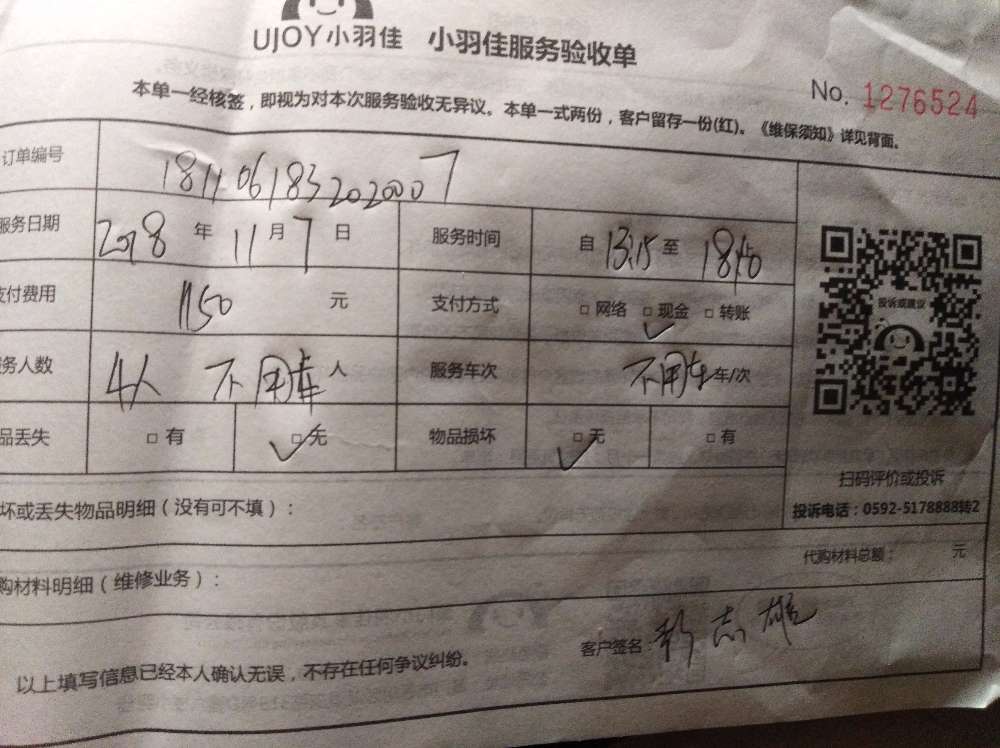 UJOY小羽佳 小羽佳服务验收单
No. 1276524
本单一经核签，即视为对本次服务验收无异议。本单一式两份，客户留存一份(红)。《维保须知》详见背面。
订单编号 181106183202007
服务日期 2018 年 11 月 7 日 服务时间 自 13:15 至
支付费用 1150 元 支付方式 □ 网络 □ 现金 □ 转账
务人数 4人 不用车 人 服务车次 不用车 车/次
品丢失 □ 有 □ 无 物品损坏 □ 无 □ 有
投诉或建议
扫码评价或投诉
投诉电话：0592-5178888转2
坏或丢失物品明细（没有可不填）：
代购材料总额： 元
购材料明细（维修业务）：
客户签名: 志雄
以上填写信息已经本人确认无误，不存在任何争议纠纷。